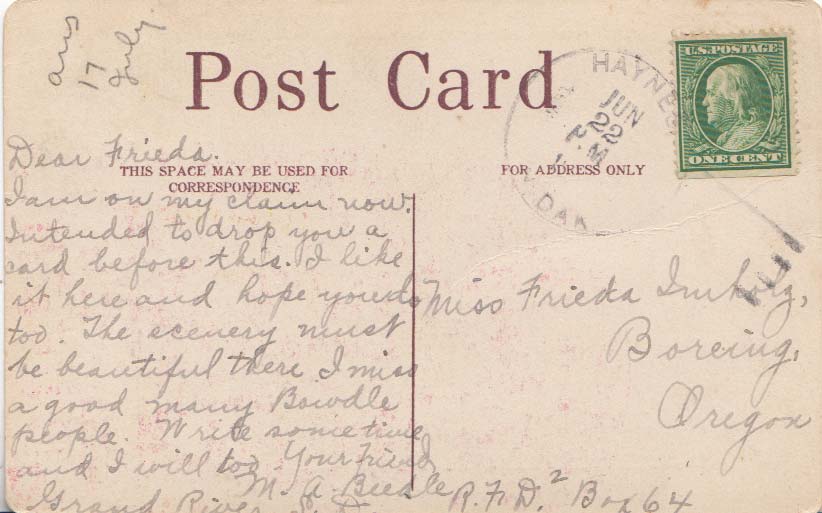 ans
17
July
Post Card
HAYNES
JUN
22
M
DAK
U.S. POSTAGE
ONE CENT
THIS SPACE MAY BE USED FOR
CORRESPONDENCE
FOR ADDRESS ONLY
Dear Frieda.
I am on my claim now.
Intended to drop you a
card before this. I like
it here and hope you do
too. The scenery must
be beautiful there I miss
a good many Bowdle
people. Write sometime
and I will too. Your Friend
M. A. Beedle
Grand River
Miss Frieda
Boreing,
Oregon
R.F.D. 2 Box 64